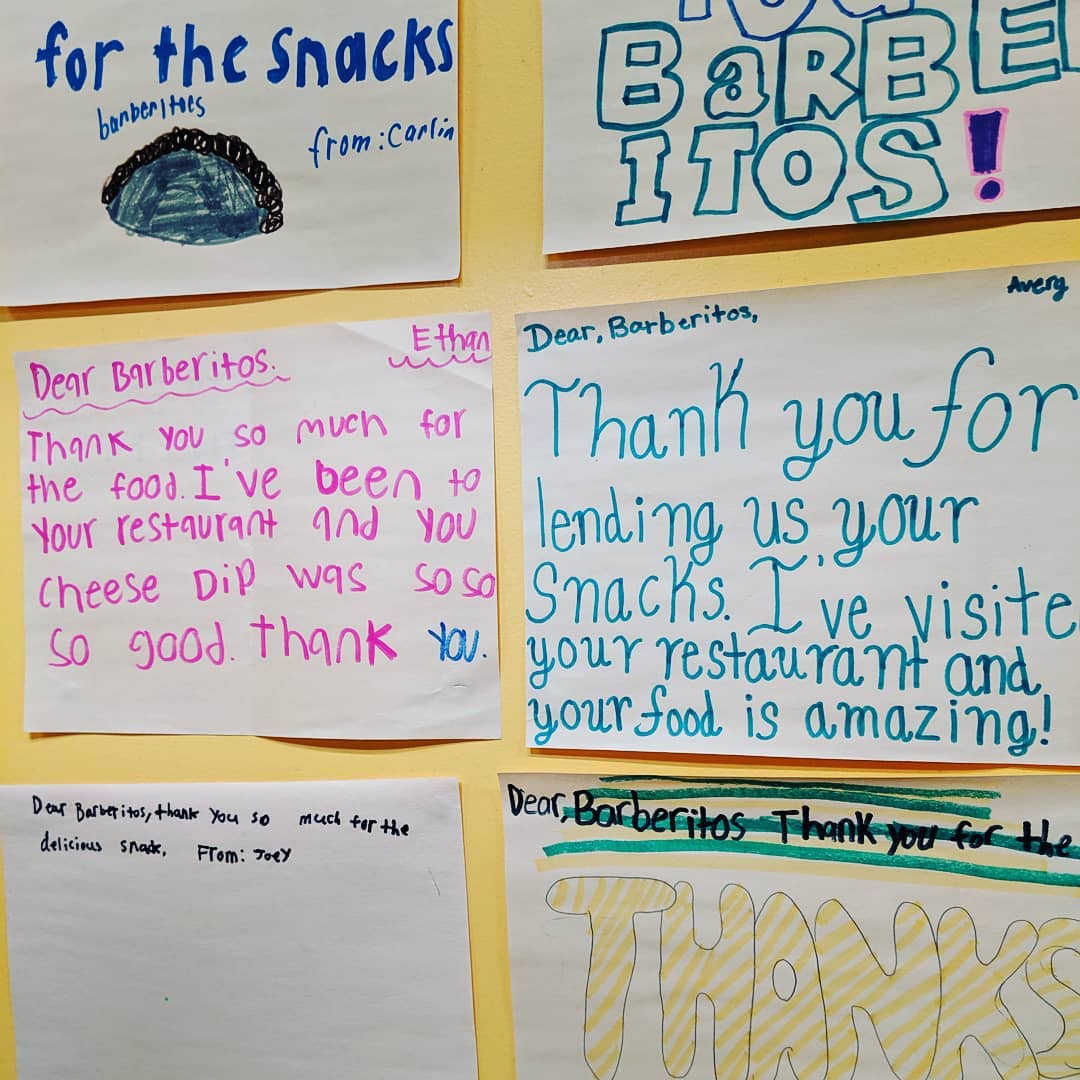 for the snacks
banberitoes
from: Carlin
YOU
BaRBE
ITOS!
Ethan
Dear Barberitos.
Thank you so much for
the food. I've been to
your restaurant and you
cheese Dip was so so
so good. thank you.
Avery
Dear, Barberitos,
Thank you for
lending us, your
Snacks. I've visite
your restaurant and
your food is amazing!
Dear Barberitos, thank you so much for the
delicious snack. From: Joey
Dear, Barberitos Thank you for the
THANKS